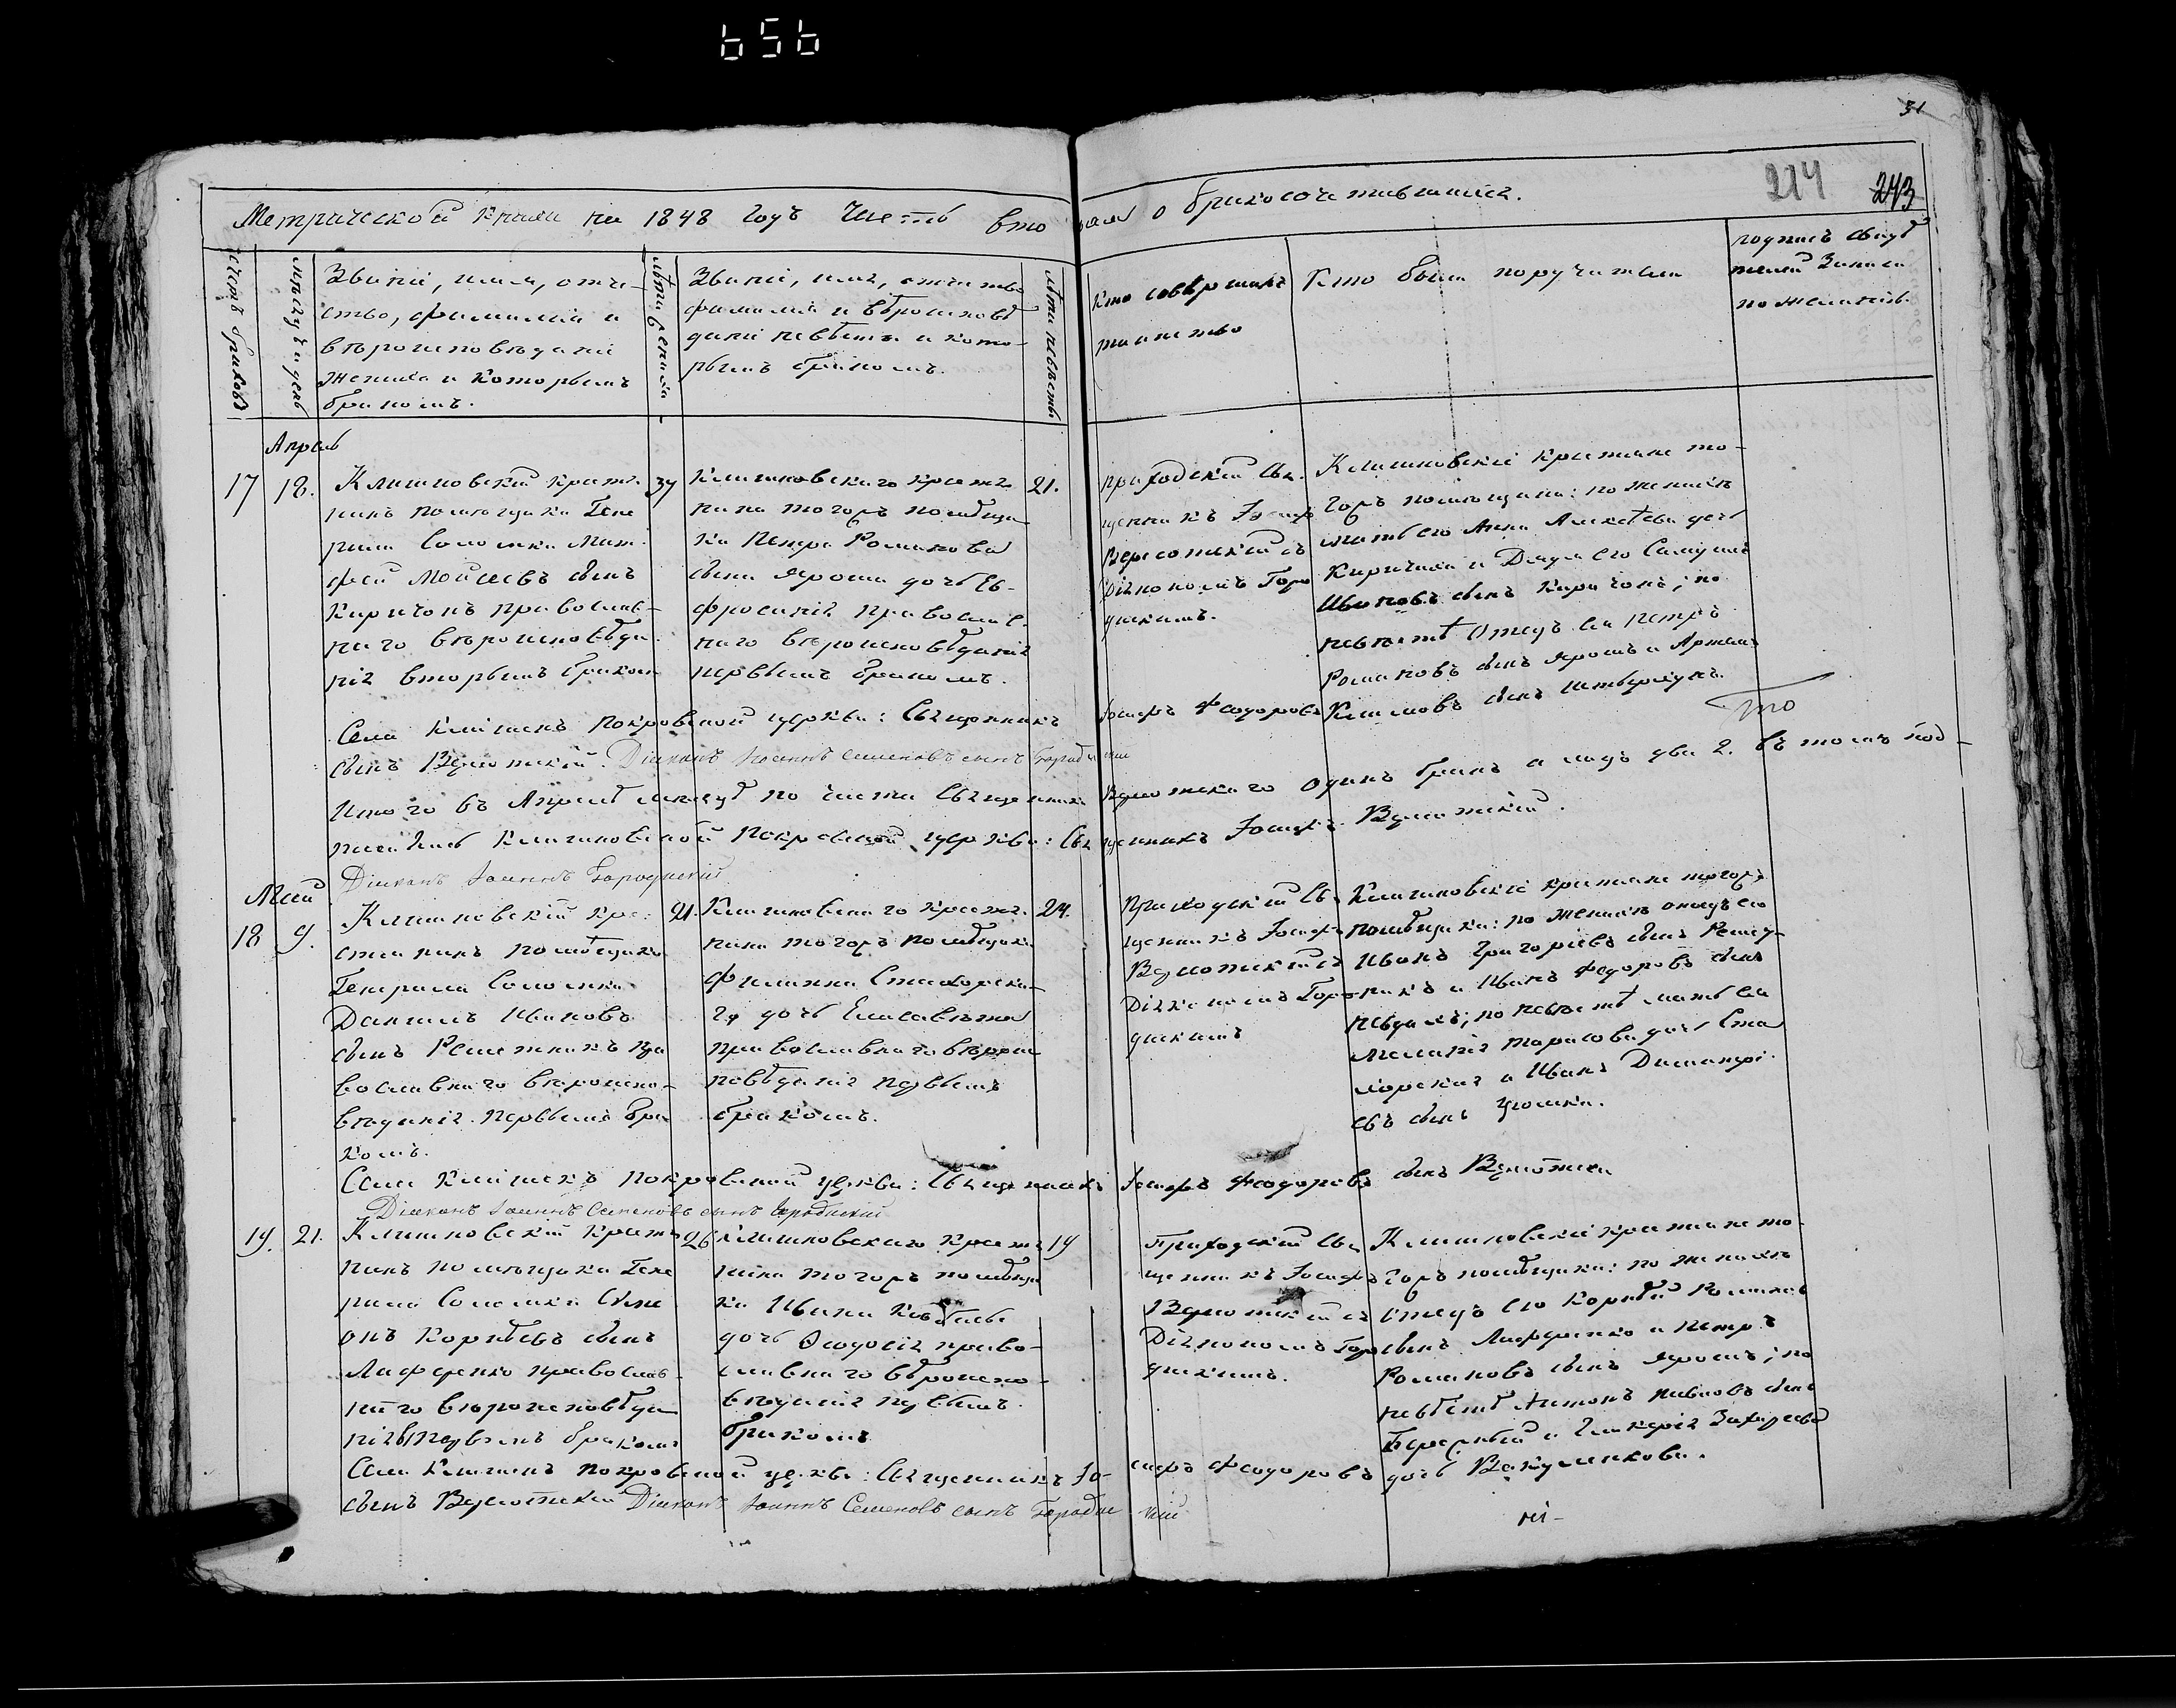 656
31
214 243
Метрической книги на 1848 годъ Часть вторая о бракосочетавшихся.
счетъ браковъ
мѣсяцъ и день
Званіе, имя, отче-
ство, фамилія и
вѣроисповѣданіе
жениха и которымъ
бракомъ.
лѣта жениха
Званіе, имя, отчество
фамилія и вѣроисповѣ
даніе невѣсты и кото-
рымъ бракомъ.
лѣта невѣсты
Кто совершалъ
таинство
Кто были поручители
подпись свидѣ
телей Записи
по желанію.
Апрель
17 18.
Клишковскій крестья
нинъ помѣщика Гене
рала Соломки Мат
фей Моисеевъ сынъ
Киричокъ православ-
наго вѣроисповѣда
нія вторымъ бракомъ
34
Клишковскаго крестья
нина тогожъ помѣщи
ка Петра Романова
сына Яроша дочь Ев-
фросинія православ
наго вѣроисповѣданія
первымъ бракомъ.
21.
приходскій Свя
щенникъ Іосифъ
съ
Діякономъ Горо
дискимъ.
Клишковскіе крестьяне то-
гожъ помѣщика: по женихѣ
мать его Анна Алексѣева дочь
Киричиха и Дядя его Самуилъ
Ивановъ сынъ Киричокъ; по
невѣстѣ Отецъ ея Петръ
Романовъ сынъ Ярошъ и Артемъ
Климовъ сынъ
Села Клишекъ Покровской церкви: Священникъ Іосифъ Феодоровъ
сынъ Діяконъ Іоаннъ Семеновъ сынъ Городискій
То
Итого въ Апрелѣ мѣсяцѣ по части Священника одинъ бракъ а лицъ два 2. въ томъ под-
писались Клишковской Покровской церкви: Священникъ Іосифъ
Діяконъ Іоаннъ Городиский
Май
18 9.
Клишковскій кре
стьянинъ помѣщика
Генерала Соломки
Даніилъ Ивановъ
сынъ Решетникъ пра
вославнаго вѣроиспо-
вѣданія первымъ бра
комъ.
21.
Клишковскаго крестья
нина тогожъ помѣщика
Филиппа Стахорска-
го дочь Елисавѣта
православнаго вѣроис
повѣданія первымъ
бракомъ.
24.
приходскій Свя
щенникъ Іосифъ
съ
Діякономъ Горо
дискимъ
Клишковскіе крестьяне тогожъ
помѣщика: по женихѣ отецъ его
Иванъ Григорьевъ сынъ Решет-
никъ и Иванъ Федоровъ сынъ
по невѣстѣ мать ея
Меланія Тарасова дочь Ста
хорская и Иванъ Димитрі
евъ сынъ
Села Клишекъ Покровской церкви: Священникъ Іосифъ Феодоровъ сынъ
Діяконъ Іоаннъ Семеновъ сынъ Городиский
19. 21.
Клишковскій крестья
нинъ помѣщика Гене
рала Соломки Симе
онъ Корнѣевъ сынъ
православ-
наго вѣроисповѣда
нія первымъ бракомъ
26
Клишковскаго крестья
нина тогожъ помѣщи
ка Ивана
дочь Феодосія право-
славнаго вѣроиспо-
вѣданія первымъ
бракомъ
19
Приходскій Свя
щенникъ Іосифъ
съ
Діякономъ Горо
дискимъ.
Клишковскіе крестьяне то-
гожъ помѣщика: по женихѣ
отецъ его Корнѣй Романовъ
сынъ и Петръ
Романовъ сынъ Ярошъ; по
невѣстѣ Антонъ Павловъ сынъ
и Гликерія Захарьева
дочь Вакуленкова.
Села Клишекъ Покровской церкви: Священникъ Іо-
сифъ Феодоровъ
сынъ Діяконъ Іоаннъ Семеновъ сынъ Городиский